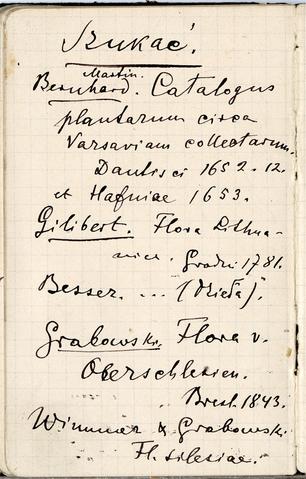 Szukać.
Martin.
Bernhard. Catalogus
plantarum circa
Varsaviam collectarum.
Dantisci 1652. 12.
et Hafniae 1653.
Gilibert. Flora Lithua-
nica. Grodn. 1781.
Besser. ... (Dzieła).
Grabowski, Flora v.
Oberschlesien.
Bresl. 1843.
Wimmer & Grabowski
Fl. silesiae.